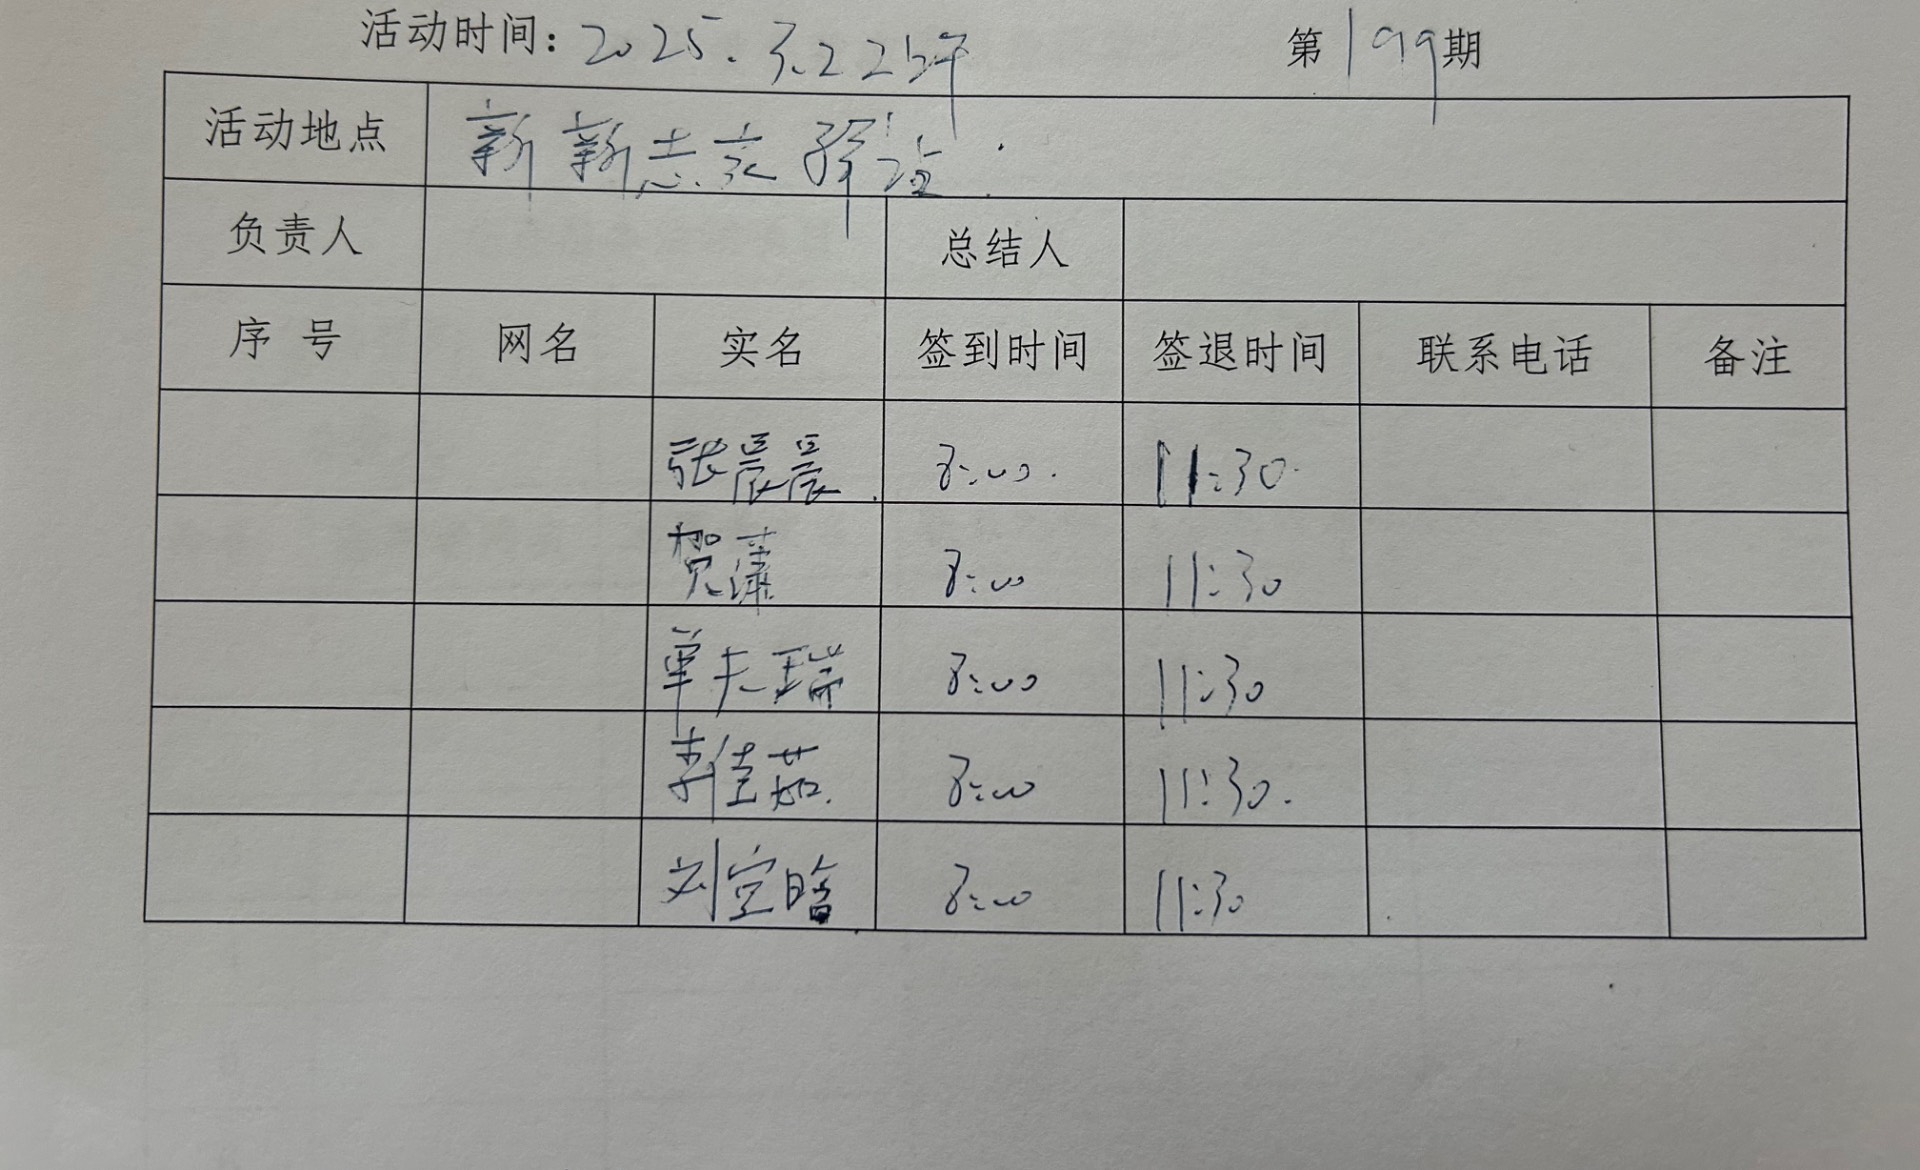 活动时间：2025.3.22上午 第199期
活动地点 新新志愿驿站
负责人 总结人
序号 网名 实名 签到时间 签退时间 联系电话 备注
张晨晨 8:00 11:30
贺潇 8:00 11:30
单夫瑞 8:00 11:30
李佳茹 8:00 11:30
刘宜晗 8:00 11:30